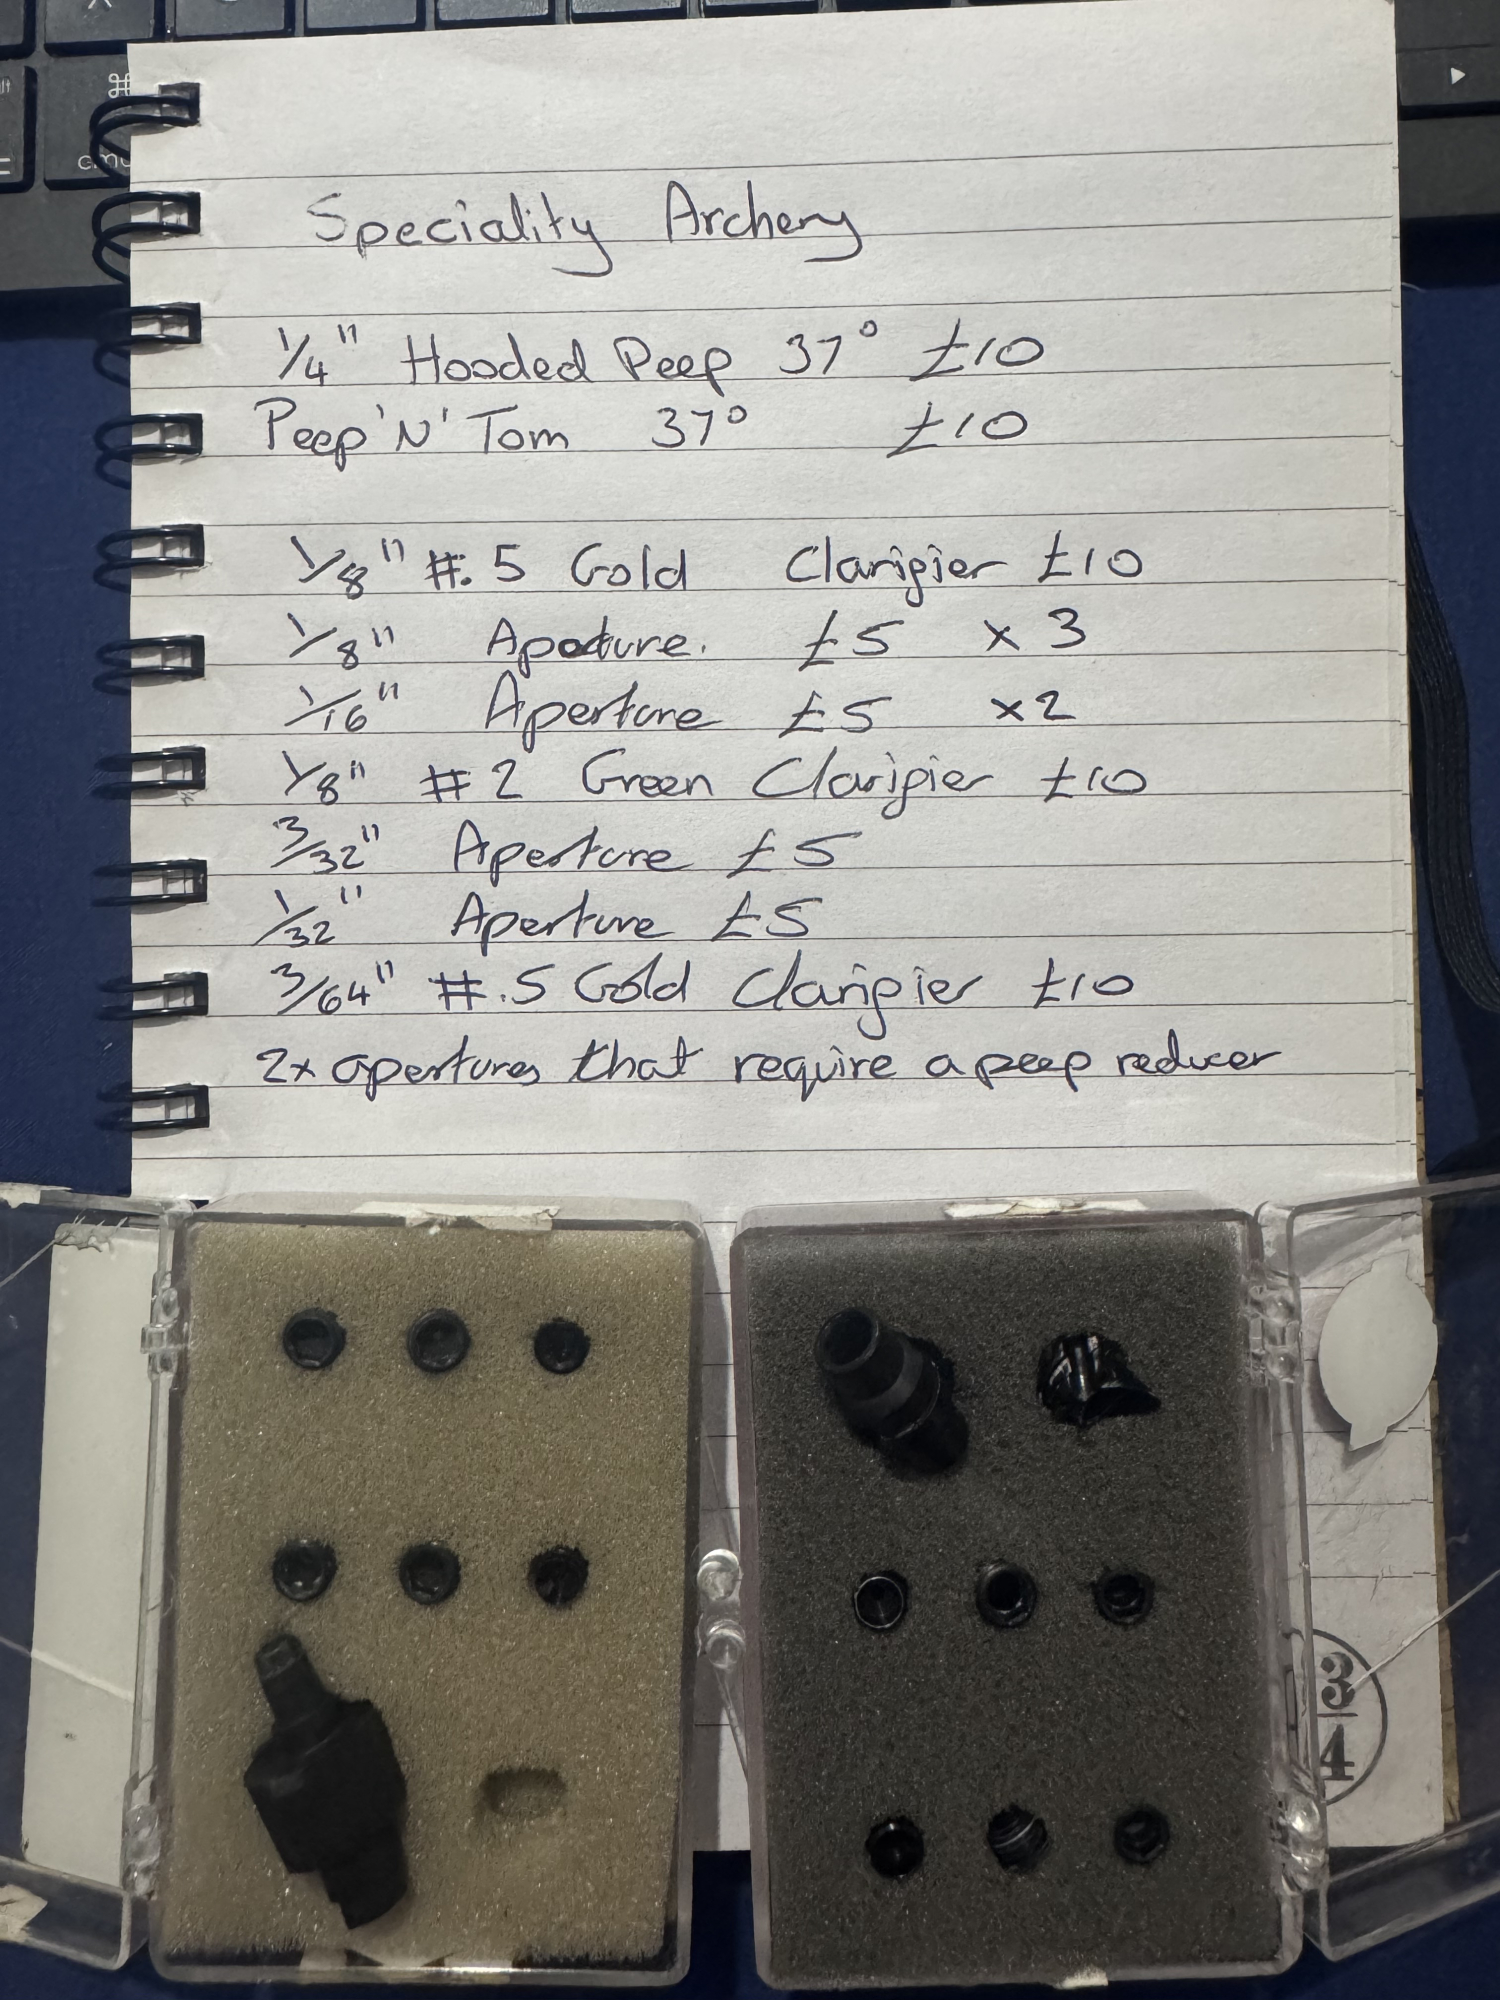 ⌘
cmd
Speciality Archery
1/4" Hooded Peep 37° £10
Peep 'N' Tom 37° £10
1/8" #.5 Gold Clarifier £10
1/8" Aperture. £5 x 3
1/16" Aperture £5 x2
1/8" #2 Green Clarifier £10
3/32" Aperture £5
1/32" Aperture £5
3/64" #.5 Gold Clarifier £10
2x apertures that require a peep reducer
3
4